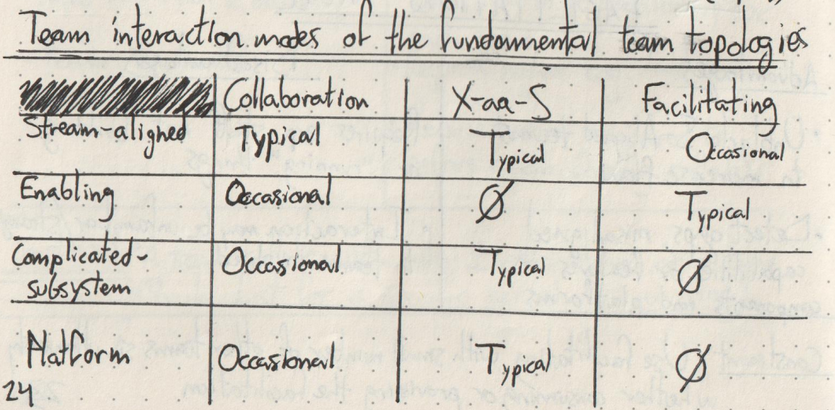 Team interaction modes of the fundamental team topologies
Collaboration X-aa-S Facilitating
Stream-aligned Typical Typical Occasional
Enabling Occasional Ø Typical
Complicated-
subsystem Occasional Typical Ø
Platform Occasional Typical Ø
24